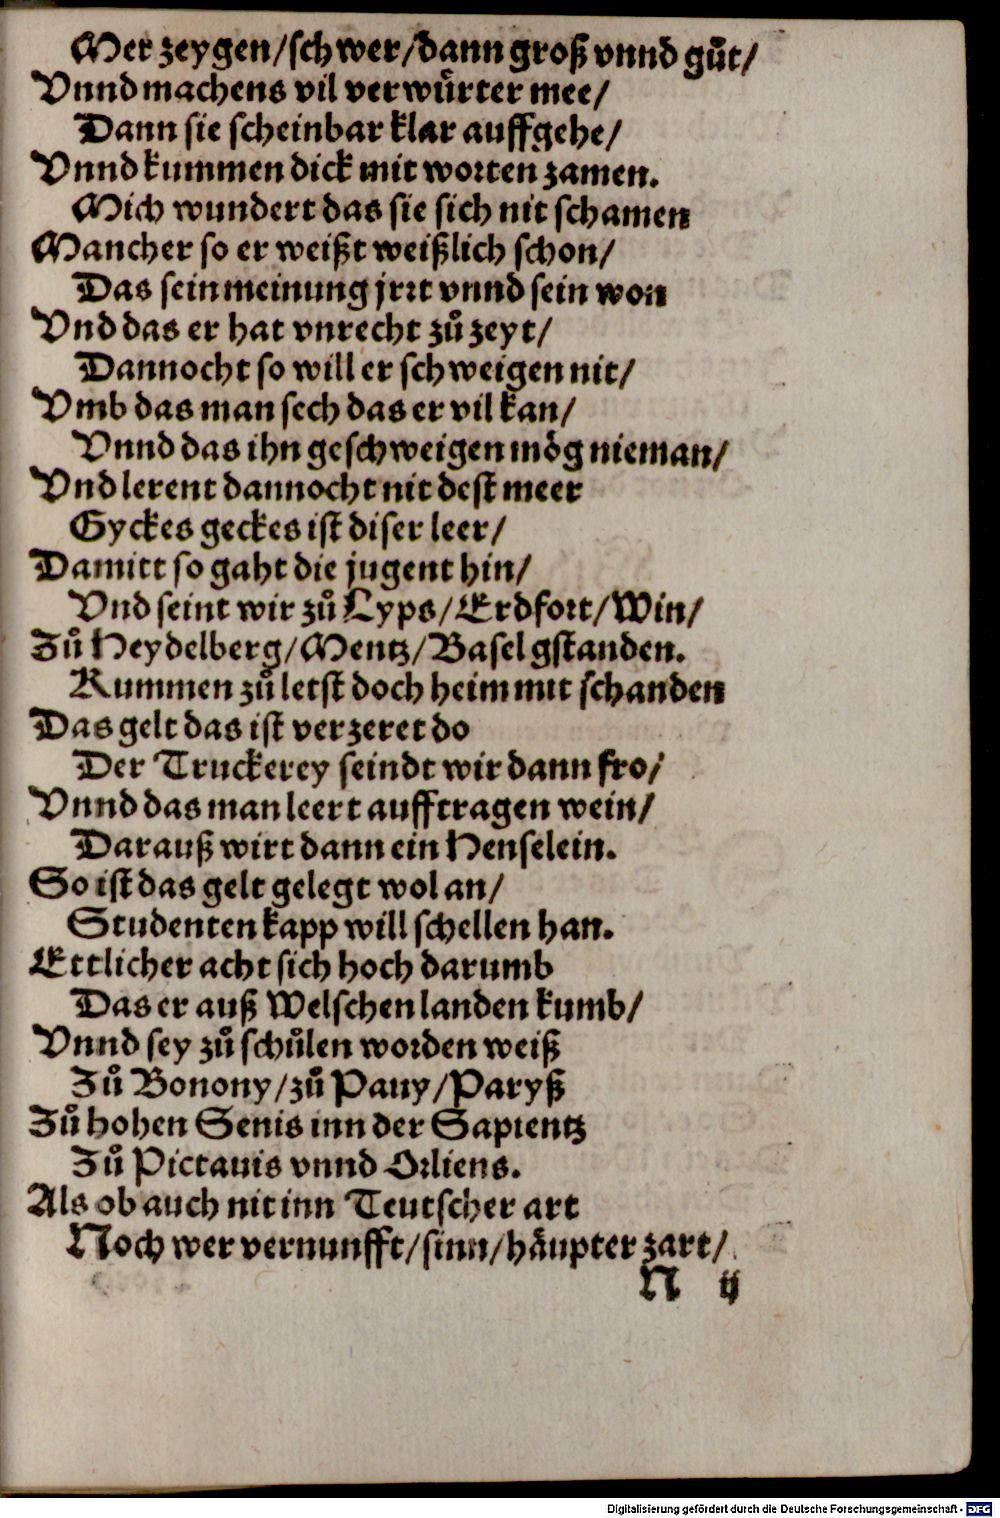 Mer zeygen/schwer/dann groß vnnd guͦt/
Vnnd machens vil verwürter mee/
Dann sie scheinbar klar auffgehe/
Vnnd kummen dick mit worten zamen.
Mich wundert das sie sich nit schamen
Mancher so er weißt weißlich schon/
Das sein meinung jrrt vnnd sein won
Vnd das er hat vnrecht zuͦ zeyt/
Dannocht so will er schweigen nit/
Vmb das man sech das er vil kan/
Vnnd das ihn geschweigen mög nieman/
Vnd lerent dannocht nit dest meer
Gyckes geckes ist diser leer/
Damitt so gaht die jugent hin/
Vnd seint wir zuͦ Lyps/Erdfort/Win/
Zuͦ Heydelberg/Mentz/Basel gstanden.
Kummen zuͦ letst doch heim mit schanden
Das gelt das ist verzeret do
Der Truckerey seindt wir dann fro/
Vnnd das man leert aufftragen wein/
Darauß wirt dann ein Henselein.
So ist das gelt gelegt wol an/
Studenten kapp will schellen han.
Ettlicher acht sich hoch darumb
Das er auß Welschen landen kumb/
Vnnd sey zuͦ schuͦlen worden weiß
Zuͦ Bonony/zuͦ Pauy/Paryß
Zuͦ hohen Senis inn der Sapientz
Zuͦ Pictauis vnnd Orliens.
Als ob auch nit inn Teutscher art
Noch wer vernunfft/sinn/häupter zart/
N ij
Digitalisierung gefördert durch die Deutsche Forschungsgemeinschaft - DFG